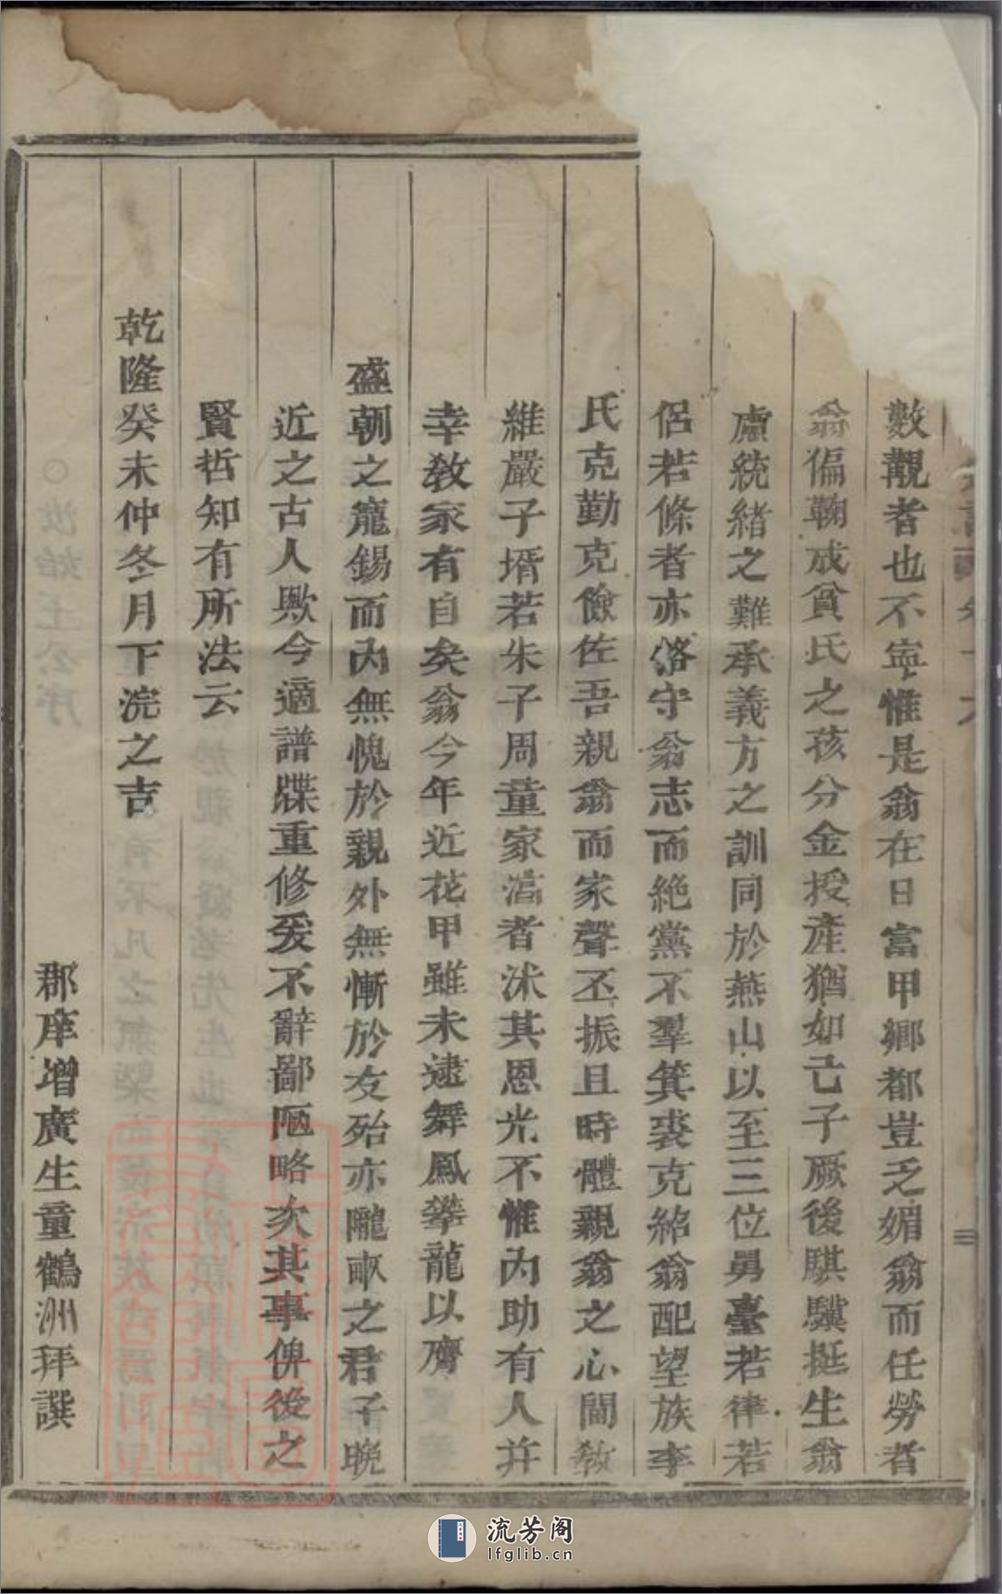 數觀者也不寧惟是翁在日富甲鄉都豈乏媚翁而任勞者
翁偏鞠成貧氏之孩分金授產猶如己子厥後騏驥挺生翁
慮統緒之難承義方之訓同於燕山以至三位舅臺若律若
侶若條者亦恪守翁志而絶黨不羣箕裘克紹翁配望族李
氏克勤克儉佐吾親翁而家聲丕振且時體親翁之心閫教
維嚴子壻若朱子周童家濇者沐其恩光不惟内助有人并
幸教家有自矣翁今年近花甲雖未逮舞鳳攀龍以膺
盛朝之寵錫而内無愧於親外無慚於友殆亦隴畝之君子晚
近之古人歟今適譜牒重修爰不辭鄙陋略次其事俾後之
賢哲知有所法云
乾隆癸未仲冬月下浣之吉
郡庠增廣生童鶴洲拜譔
流芳阁
lfglib.cn